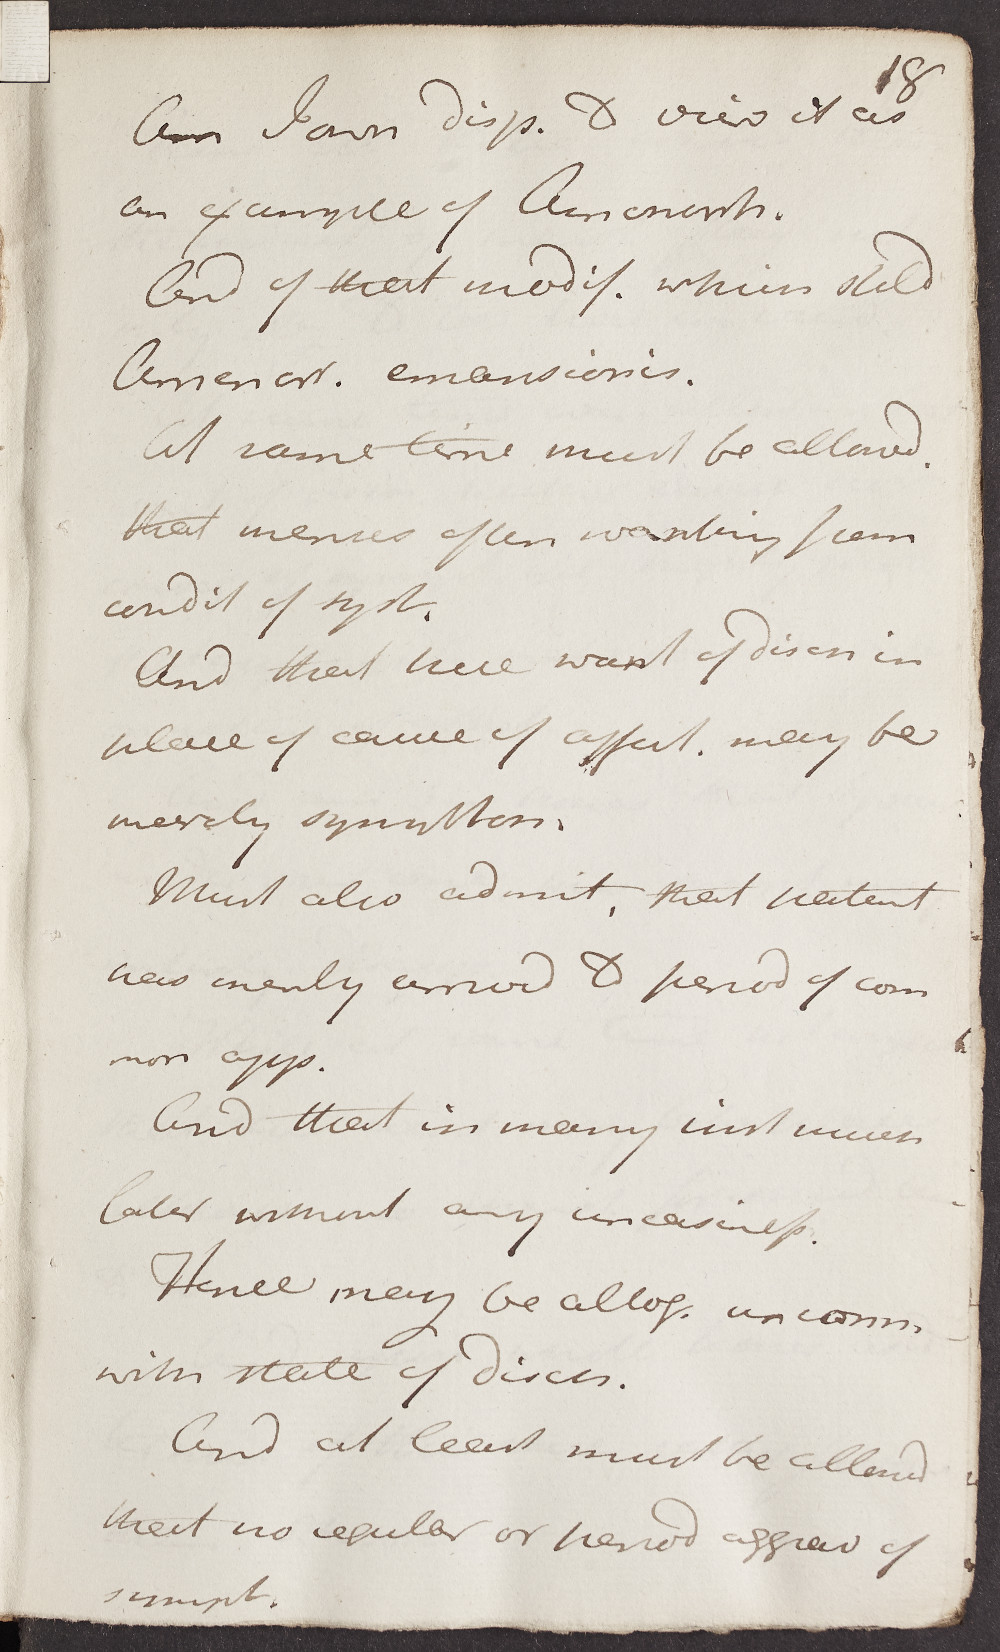 18
Am I own disp. to view it as
an example of Amenorrh.
And of that modif. which stild
Amenorr. emansionis.
At same time must be allowed.
that menses often wanting from
condit of syst.
And that here want of disch in
place of cause of affect. may be
merely symptom.
Must also admit, that patient
has merely arrived to period of com
mon app.
And that in many inst much
later without any uneasiness.
Hence may be altog. unconn.
with state of disch.
And at least must be allowed
that no regular or period aggrav of
sympt.